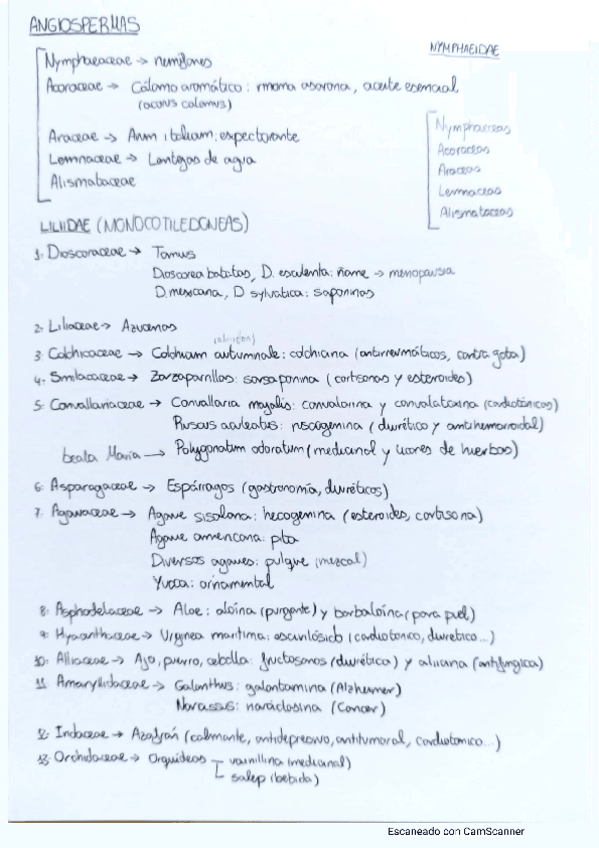 ANGIOSPERMAS
Nymphaeaceae → nenúfares
Acoraceae → Cálamo aromático: rizoma asarona, aceite esencial
(acorus calamus)
Araceae → Arum italicum: expectorante
Lemnaceae → Lentejas de agua
Alismataceae
NYMPHAEIDAE
Nymphaeceas
Acoraceas
Araceas
Lemnaceas
Alismataceas
LILIIDAE (MONOCOTILEDONEAS)
1. Dioscoraceae → Tamus
Dioscorea batatas, D. esculenta: ñame → menopausia
D. mexicana, D sylvatica: saponinas
2. Liliaceae → Azucenas
3. Colchicaceae → Colchicum autumnale: colchicina (antirreumáticos, contra gota)
4. Smilacaceae → Zarzaparrillas: sarsaponina (cortisonas y esteroides)
5. Convallariaceae → Convallaria majalis: convalarina y convalatoxina (cardiotónicos)
Ruscus aculeatus: ruscogenina (diurético y antihemorroidal)
beata María → Polygonatum odoratum (medicinal y licores de hierbas)
6. Asparagaceae → Espárragos (gastronomía, diuréticos)
7. Agavaceae → Agave sisalana: hecogenina (esteroides, cortisona)
Agave americana: pita
Diversos agaves: pulque (mezcal)
Yucca: ornamental
8. Asphodelaceae → Aloe: aloína (purgante) y barbaloína (para piel)
9. Hyacinthaceae → Urginea maritima: escinilósido (cardiotónico, diurético...)
10. Alliaceae → Ajo, puerro, cebolla: fructosanos (diurética) y aliicina (antifúngica)
11. Amaryllidaceae → Galanthus: galantamina (Alzheimer)
Narcissus: narciclasina (Cancer)
12. Iridaceae → Azafrán (calmante, antidepresivo, antitumoral, cardiotónico...)
13. Orchidaceae → Orquídeas vainillina (medicinal)
salep (bebida)
Escaneado con CamScanner